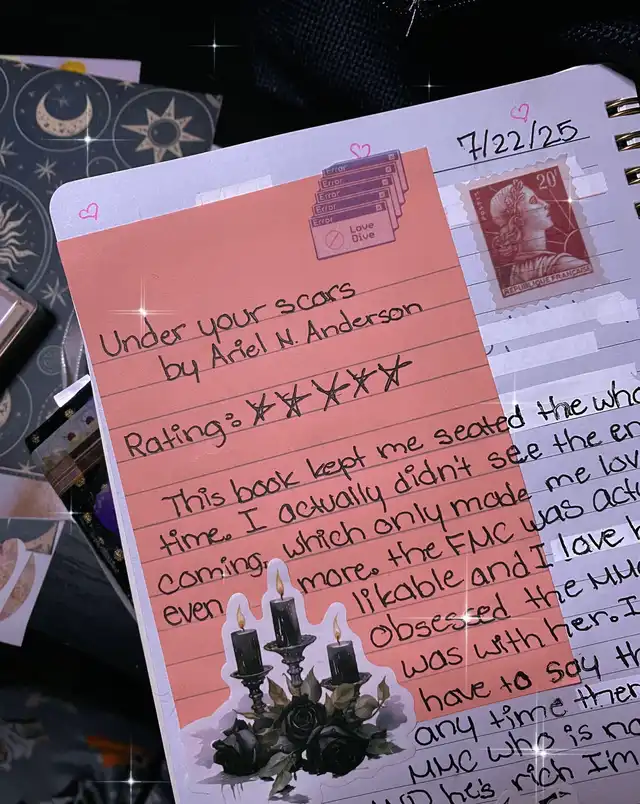 7/22/25
Error
Error
Error
Error
Error
Love
Dive
20F
REPUBLIQUE FRANÇAISE
Under your scars
by Ariel N. Anderson
Rating: ☆☆☆☆☆
This book kept me seated the who
time. I actually didn't see the en
coming, which only made me lov
even more. the FMC was actu
likable and I love h
obsessed the MMC
was with her. I
have to say th
any time ther
MMC who is no
AND he's rich I'm